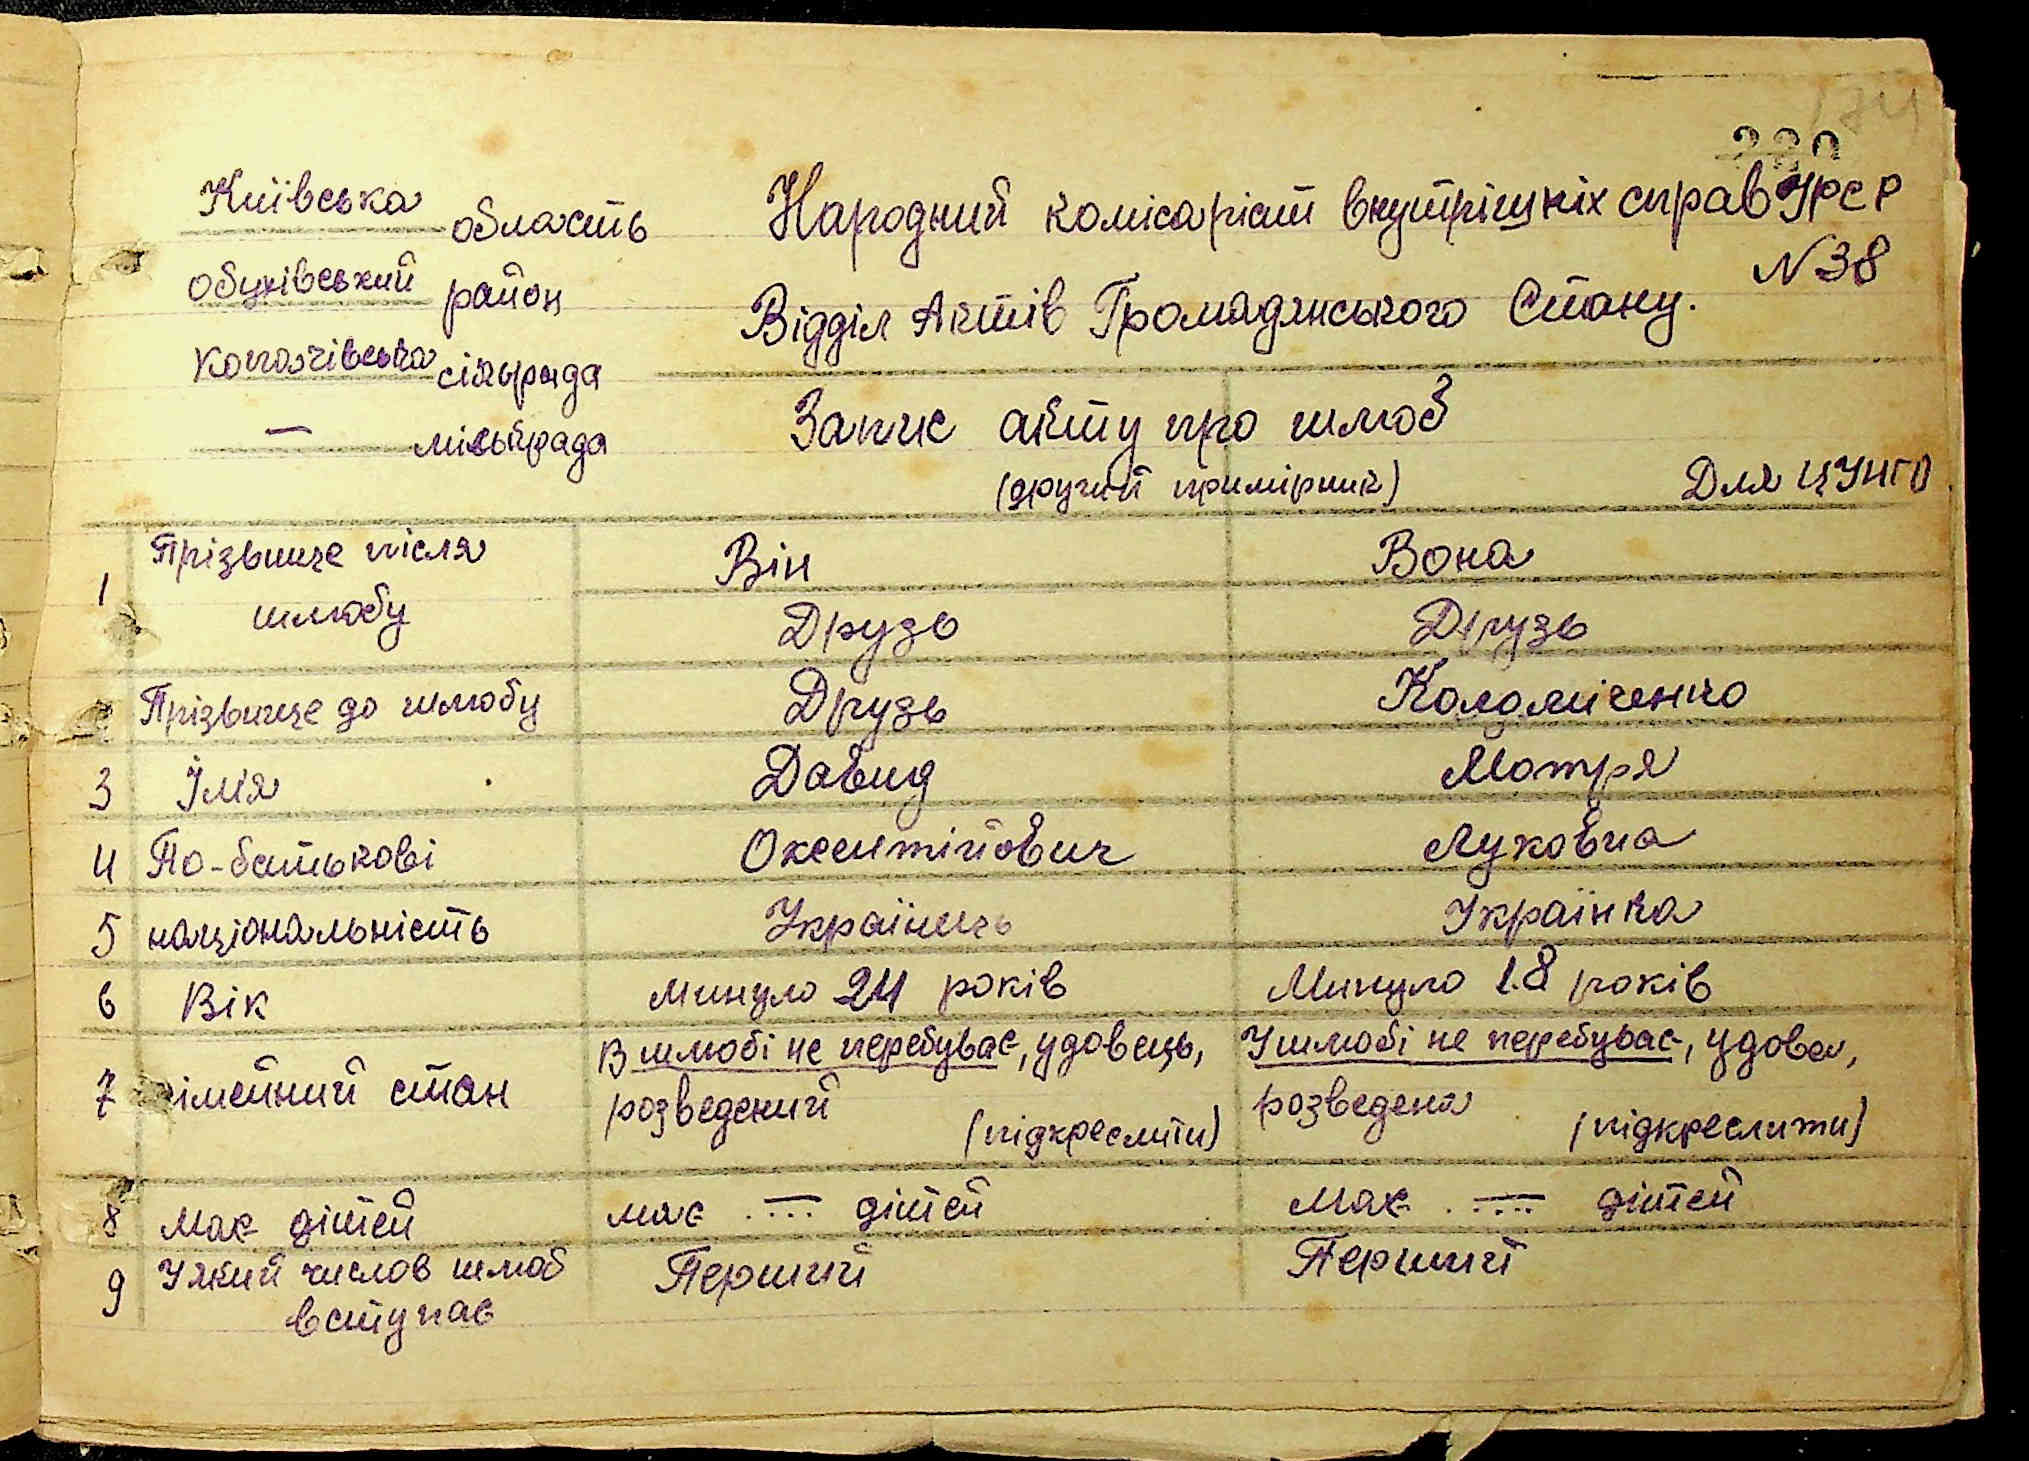 Київська область
Обухівський район
Копачівська сільрада
— міськрада
Народний комісаріат внутрішніх справ УРСР
N 38
Відділ Актів Громадянського Стану.
Запис акту про шлюб
(другий примірник) Для ЦУНГО
1 Прізвище після шлюбу Він Вона
Друзь Друзь
Прізвище до шлюбу Друзь Коломіченко
3 Ім'я Давид Мотря
4 По-батькові Оксентійович Луковна
5 національність Українець Українка
6 Вік Минуло 24 років Минуло 18 років
7 сімейний стан В шлюбі не перебуває, удовець, У шлюбі не перебуває, удова,
розведений розведена
(підкреслити) (підкреслити)
8 Має дітей має — дітей Має — дітей
9 У який числов шлюб Перший Перший
вступає